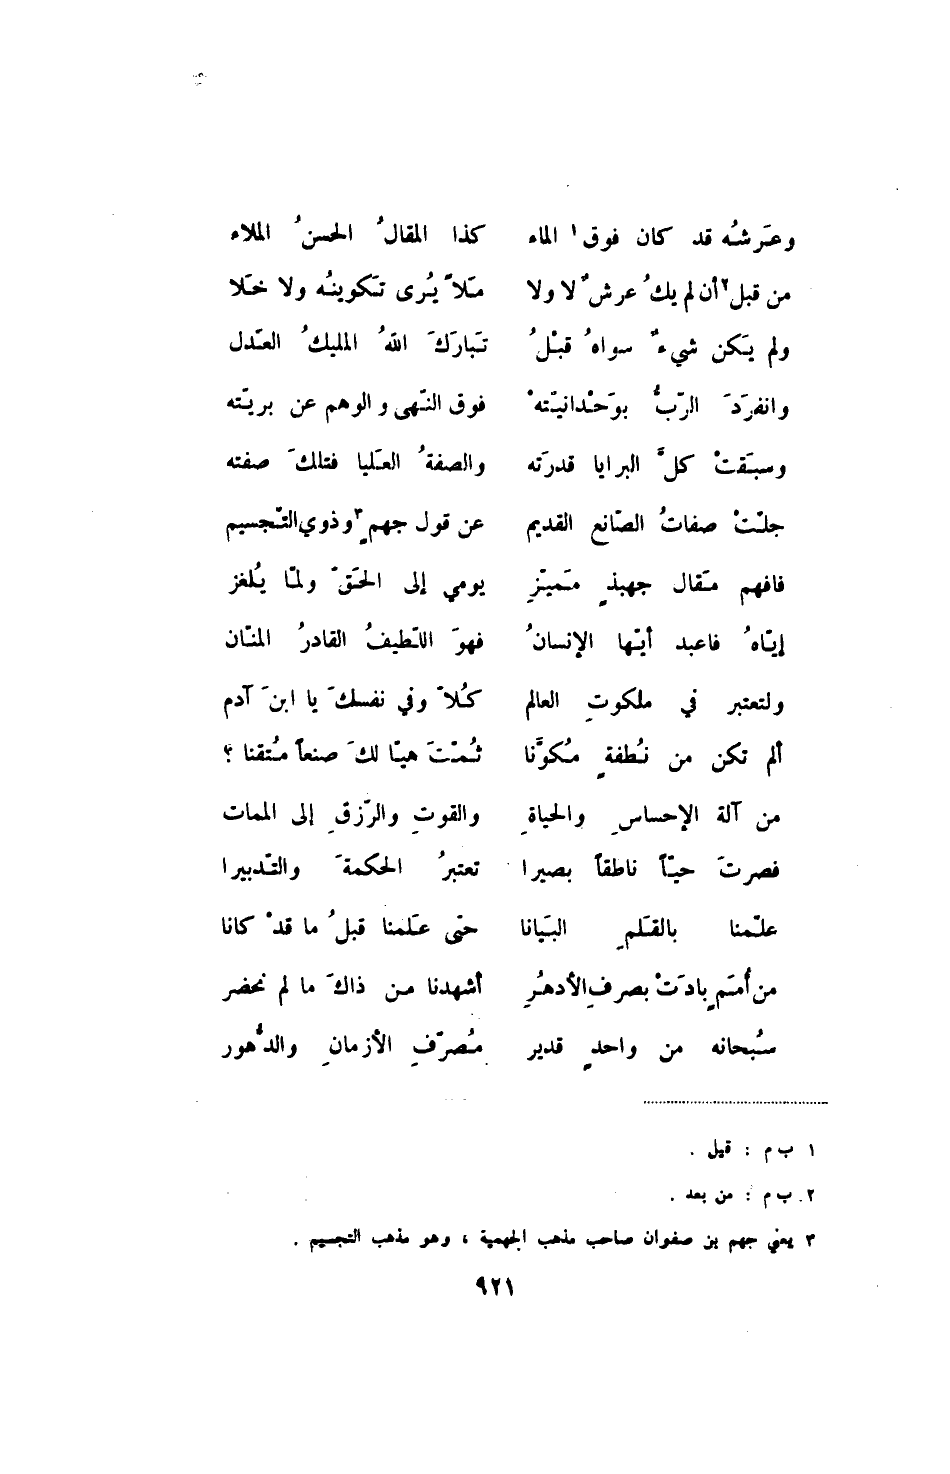 وعَرشُه قد كان فوق١ الماء كذا المقالُ الحسنُ الملاء
من قبل٢ أن لم يكُ عرشٌ لا ولا مَلأً يُرى تَكوينُه ولا خَلا
ولم يَكن شيءٌ سواهُ قبْلُ تَبارَكَ اللهُ المليكُ العَدل
وانفرَدَ الرّبُّ بوَحْدانيّتهْ فوق النّهى والوهم عن بريّته
وسبَقتْ كلَّ البرايا قدرَته والصفةُ العَليا فتلكَ صفته
جلّتْ صفاتُ الصّانع القديم عن قول جهمٍ٣ وذوي التّجسيم
فافهم مَقال جهبذٍ مَميّزِ يومي إلى الحَقّ ولمّا يُلغز
إيّاهُ فاعبد أيّها الإنسانُ فهوَ اللّطيفُ القادرُ المنّان
ولتعتبر في ملكوتِ العالم كُلاًّ وفي نفسكَ يا ابنَ آدم
ألم تكن من نُطفةٍ مُكوَّنا ثُمّتَ هيّا لكَ صنعاً مُتقنا ؟
من آلة الإحساسِ والحياةِ والقوتِ والرّزقِ إلى الممات
فصرتَ حيّاً ناطقاً بصيرا تعتبرُ الحكمةَ والتّدبيرا
علّمنا بالقَلمِ البَيانا حتى عَلمنا قبلُ ما قدْ كانا
من أُمَمٍ بادَتْ بصرفِ الأدهُرِ أشهدنا من ذاكَ ما لم نحضر
سُبحانه من واحدٍ قدير مُصرّفِ الأزمانِ والدُّهور
١ ب م : قيل .
٢ ب م : من بعد .
٣ يعني جهم بن صفوان صاحب مذهب الجهمية ، وهو مذهب التجسيم .
٩٢١